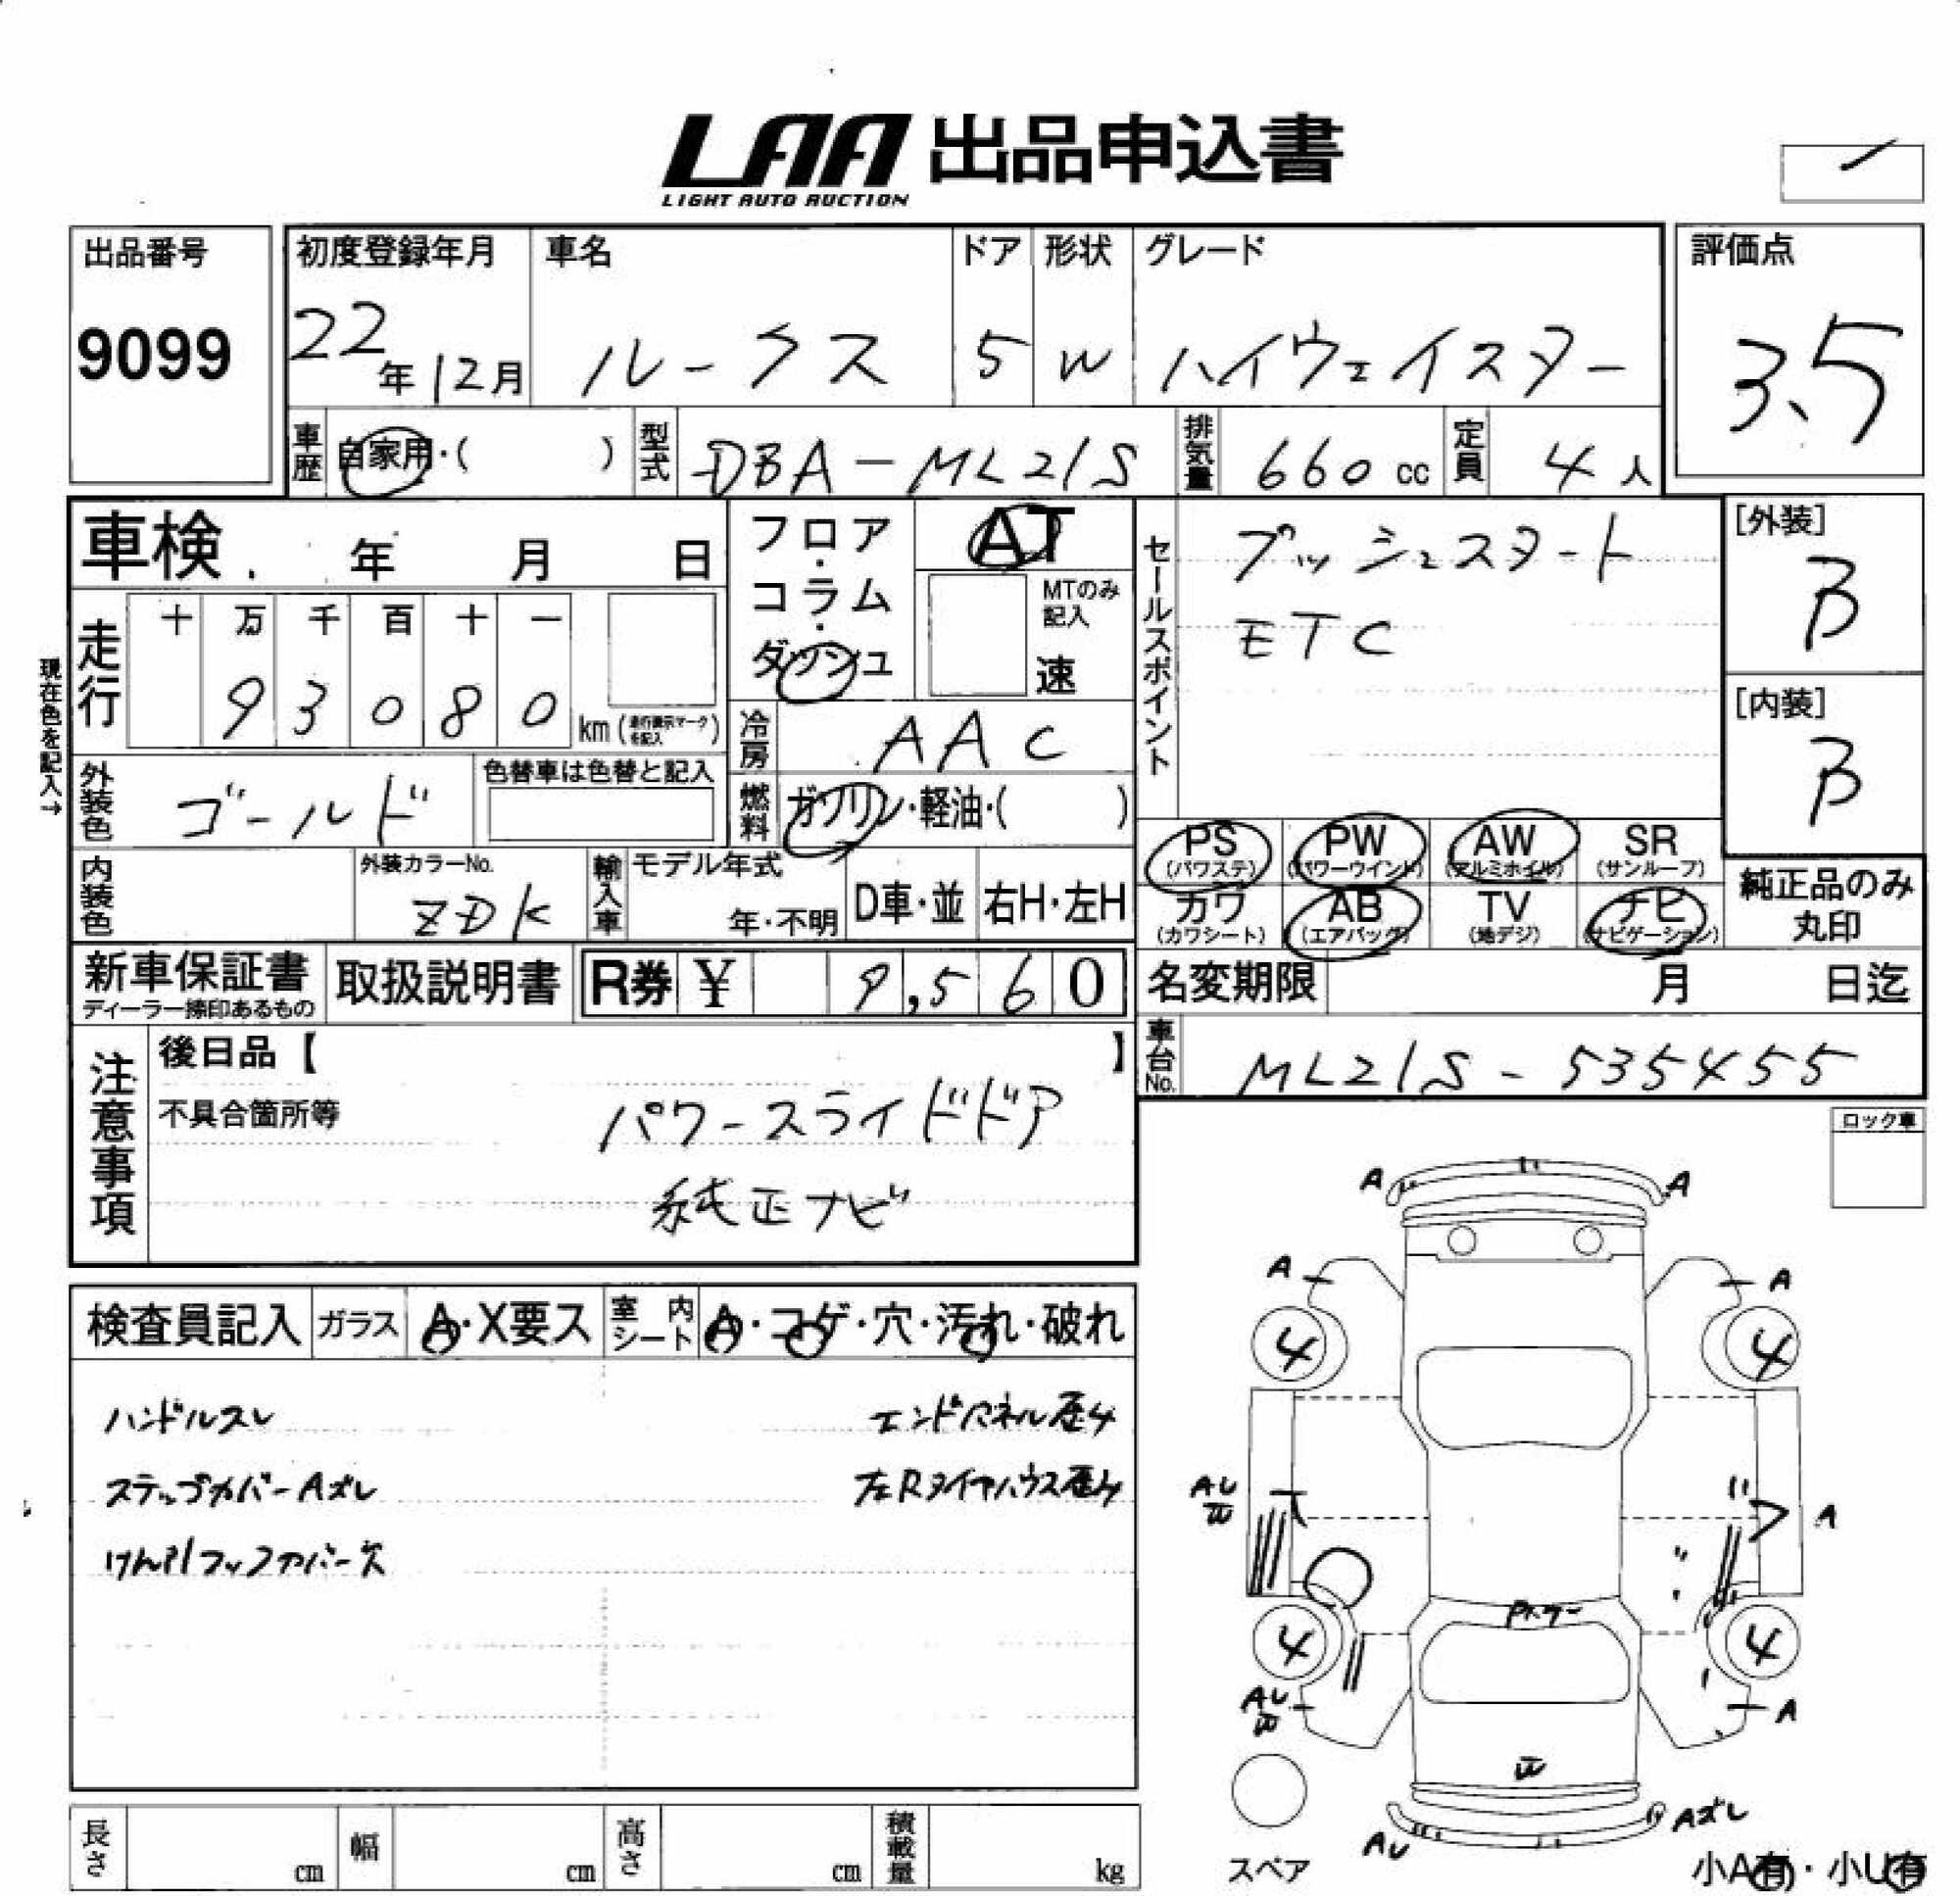 LAA 出品申込書
LIGHT AUTO AUCTION
出品番号
9099
初度登録年月
22年12月
車名
ルークス
ドア
5
形状
W
グレード
ハイウェイスター
評価点
3.5
車歴
自家用・( )
型式
DBA-ML21S
排気量
660cc
定員
4人
車検 年 月 日
フロア・コラム・ダッシュ
AT
MTのみ記入
速
セールスポイント
プッシュスタート
ETC
[外装]
B
[内装]
B
現在色を記入→
走行
十 万 千 百 十 一
9 3 0 8 0 km
冷房
AAC
外装色
ゴールド
色替車は色替と記入
燃料
ガソリン・軽油・( )
PS (パワステ)
PW (パワーウインド)
AW (アルミホイル)
SR (サンルーフ)
カワ (カワシート)
AB (エアバック)
TV (地デジ)
ナビ (ナビゲーション)
純正品のみ丸印
内装色
外装カラーNo.
ZDK
輸入車
モデル年式
年・不明
D車・並
右H・左H
新車保証書
ディーラー捺印あるもの
取扱説明書
R券 ¥ 9,560
名変期限 月 日迄
車台No.
ML21S-535455
注意事項
後日品【 】
不具合箇所等
パワースライドドア
純正ナビ
ロック車
検査員記入
ガラス
A・X要ス
室内シート
A・コゲ・穴・汚れ・破れ
ハンドルスレ
エンドパネル歪み
ステップカバーAズレ
左Rタイヤハウス歪み
けん引フックカバー欠
A A
A A
4 4
AU
W
A
4 4
AU
W
A
W
AU
Aズレ
スペア
小A有・小U有
長さ cm
幅 cm
高さ cm
積載量 kg